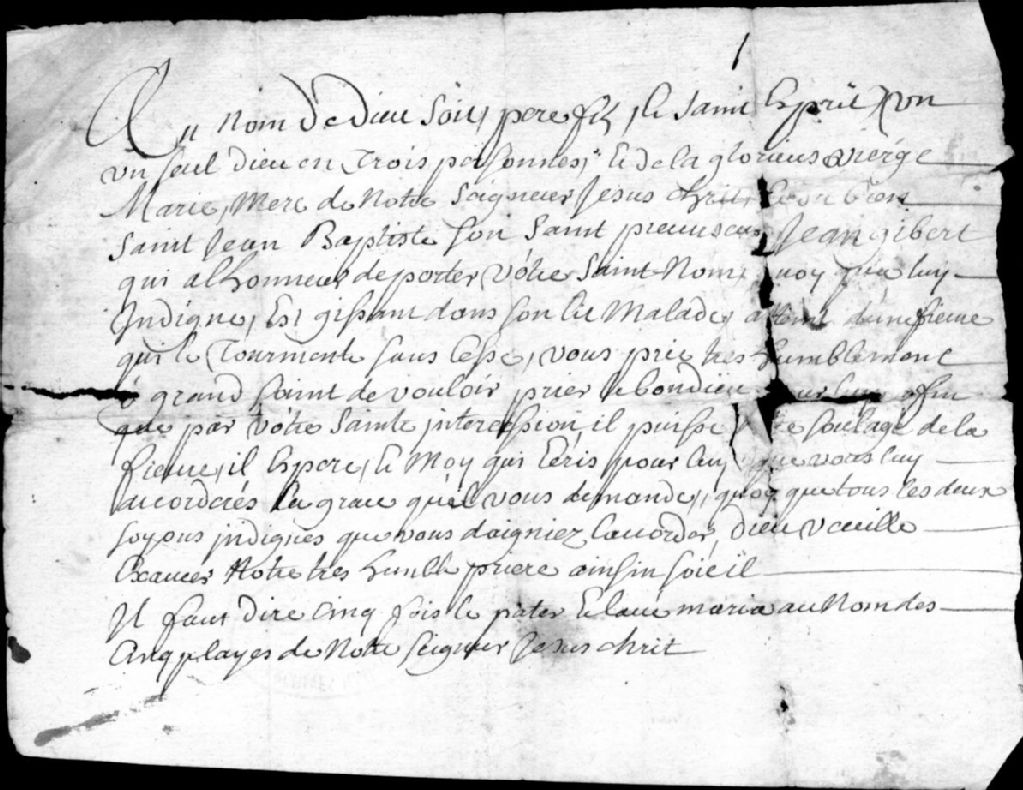 Au nom de dieu soit, pere fils, et saint Esprit, un
un seul dieu en trois personnes, et de la glorieus vierge
Marie, Mere de Notre Seigneur Jesus christ, et
Saint Jean Baptiste son saint precurseur Jean gibert
qui a lhonneur de porter, vôtre saint Nom, quoy que luy
Indigne, Est gissant dans son lit Malade, atteint d'une fieue
qui le Tourmente sans cesse, vous prie tres humblement
ô grand saint de vouloir prier le bon dieu pour luy afin
que par vôtre sainte intercession il puisse soulagé de la
fieue, il Espere, et Moy qui Ecris pour luy que vous luy
accorderés la grace qu'il vous demande, quoy que tous les deux
soyons indignes que vous daigniez l'accorder, dieu veuille
Exaucer Notre tres humble priere ainsin soit il
Il faut dire cinq fois le pater et lave maria au Nom des
Cinq playes de Notre seigneur Jesus chrit